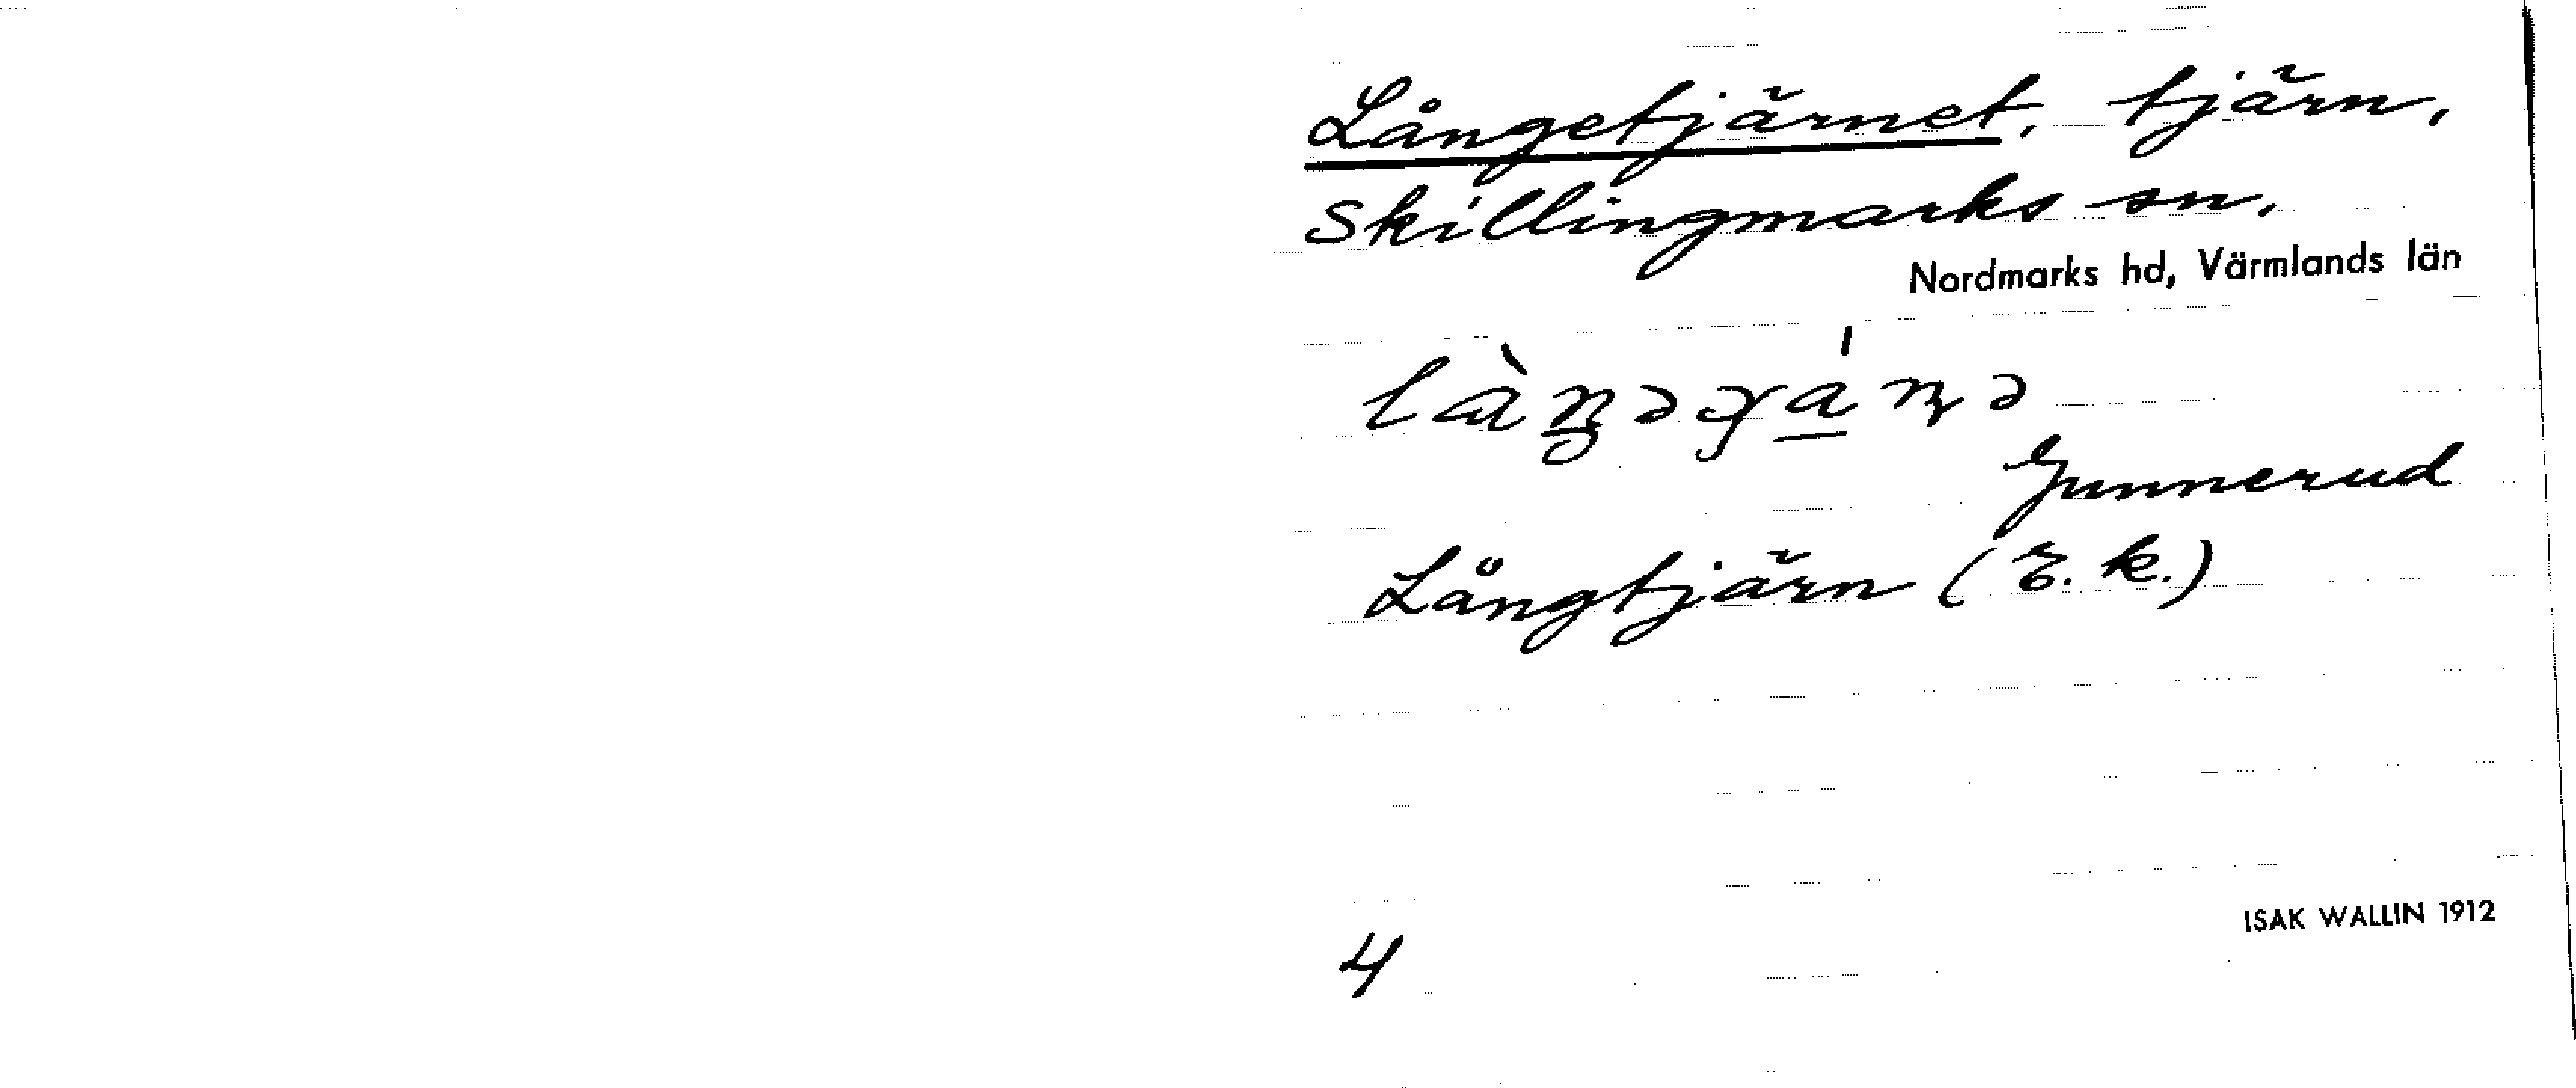 Långetjärnet, tjärn,
Skillingmarks sn.
Nordmarks hd, Värmlands län
Gunnerud
Långtjärn (E. k.)
ISAK WALLIN 1912
4